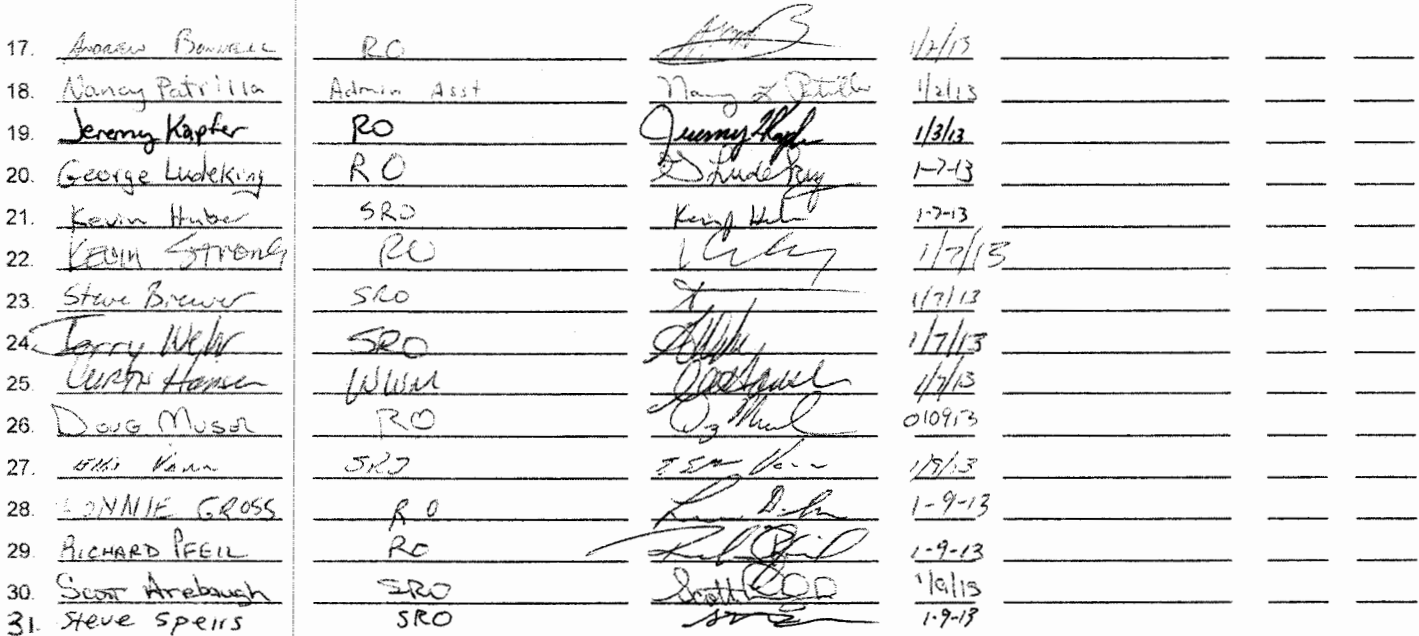 17. Andrew Bonnell RO 1/2/13
18. Nancy Patrilla Admin Asst Nancy L Patrilla 1/2/13
19. Jeremy Kapfer RO Jeremy Kapfer 1/3/13
20. George Ludeking RO G Ludeking 1-7-13
21. Kevin Huber SRO 1-7-13
22. KEVIN STRONG RO 1/7/13
23. Steve Brewer SRO 1/7/13
24. Terry Wehr SRO 1/7/13
25. Curtis Hansen WWM 1/7/13
26. DOUG MUSOR RO 010913
27. Vann SRO 1/9/13
28. LONNIE GROSS RO 1-9-13
29. RICHARD PFEIL RO 1-9-13
30. Scott Arebaugh SRO Scott 1/9/13
31. Steve Speirs SRO 1-9-13